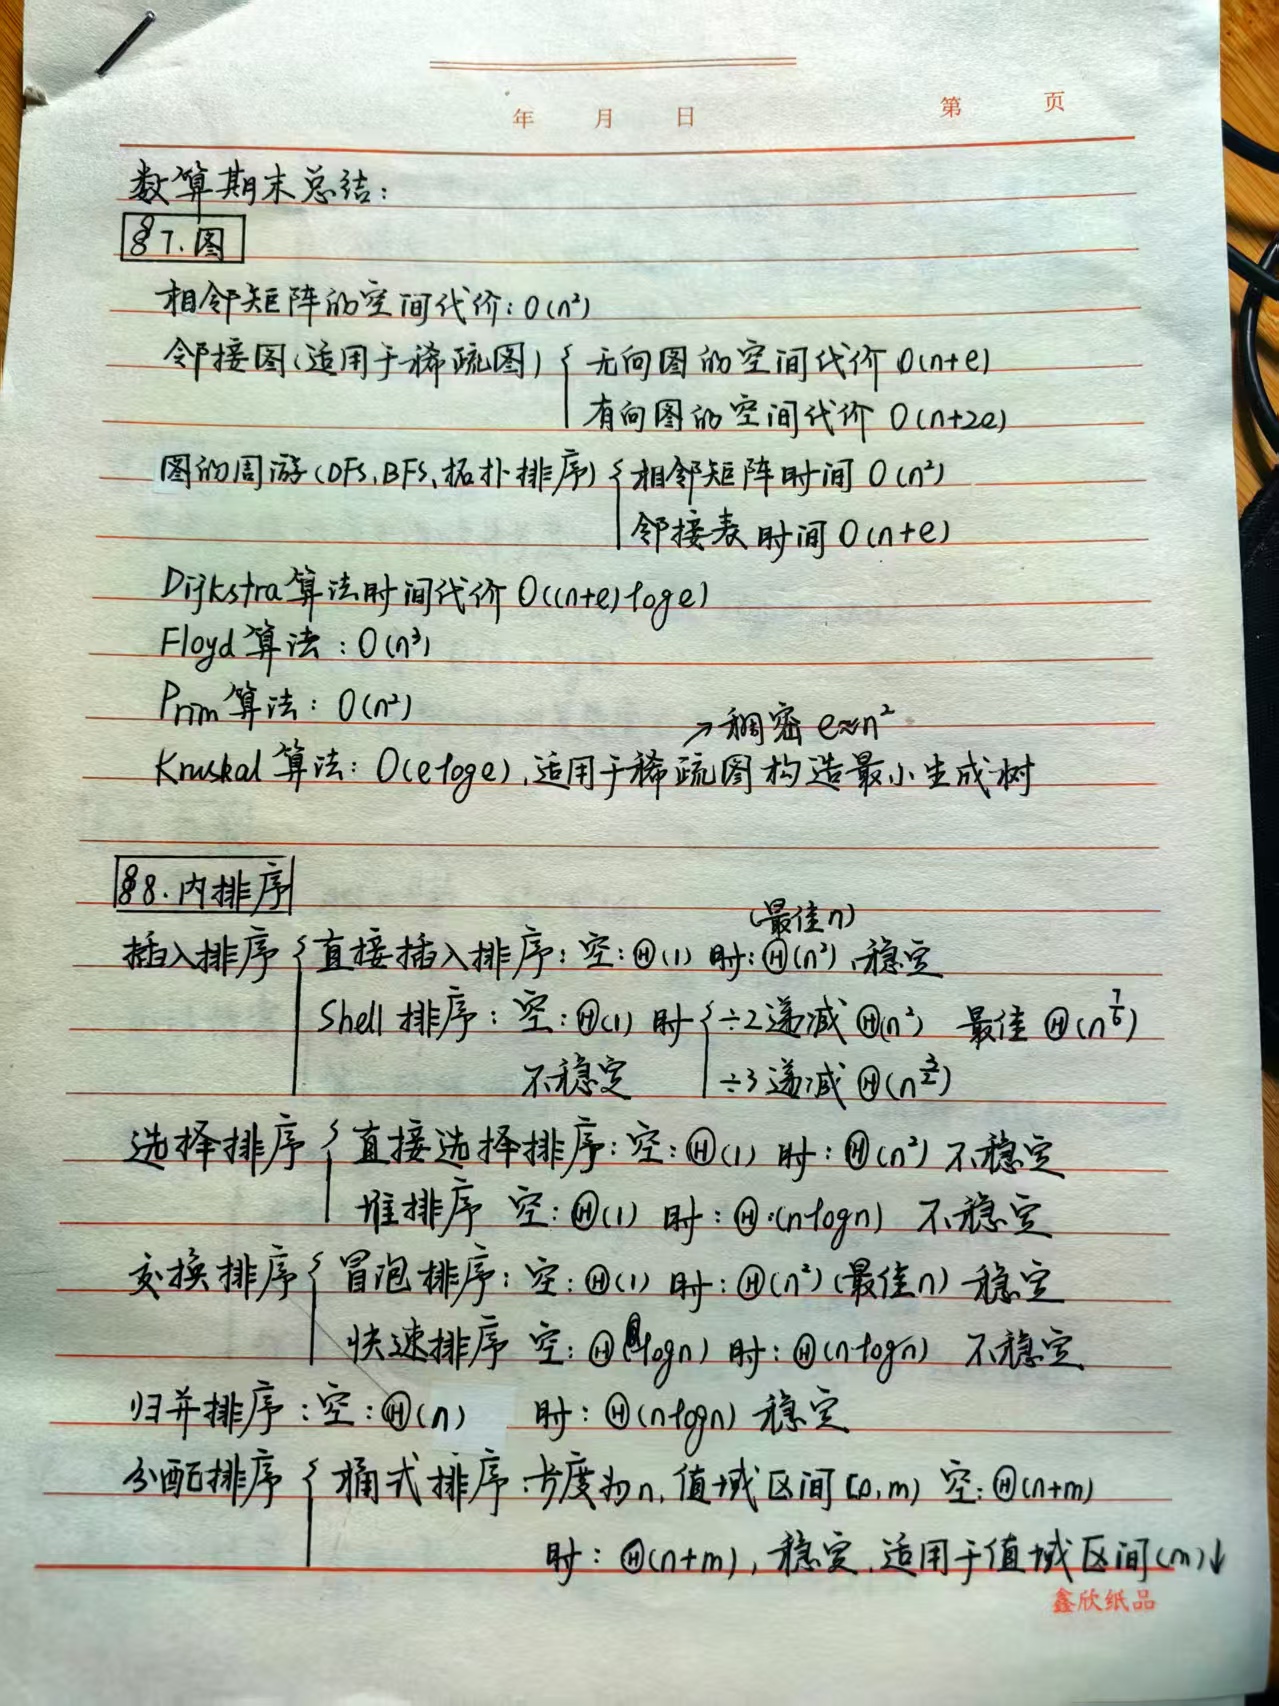 年 月 日 第 页
数算期末总结:
§7.图
相邻矩阵的空间代价: O(n²)
邻接图(适用于稀疏图) { 无向图的空间代价 O(n+e)
有向图的空间代价 O(n+2e)
图的周游(DFS、BFS、拓扑排序) { 相邻矩阵时间 O(n²)
邻接表时间 O(n+e)
Dijkstra算法时间代价 O((n+e)loge)
Floyd算法: O(n³)
Prim算法: O(n²)
→稠密 e≈n²
Kruskal算法: O(eloge),适用于稀疏图构造最小生成树
§8.内排序
(最佳n)
插入排序 { 直接插入排序: 空: Θ(1) 时: Θ(n²)、稳定
Shell排序: 空: Θ(1) 时 { ÷2递减 Θ(n²) 最佳 Θ(n^{7/6})
不稳定 ÷3递减 Θ(n^{3/2})
选择排序 { 直接选择排序: 空: Θ(1) 时: Θ(n²) 不稳定
堆排序 空: Θ(1) 时: Θ(nlogn) 不稳定
交换排序 { 冒泡排序: 空: Θ(1) 时: Θ(n²)(最佳n) 稳定
快速排序 空: Θ(logn) 时: Θ(nlogn) 不稳定
归并排序: 空: Θ(n) 时: Θ(nlogn) 稳定
分配排序 { 桶式排序:长度为n,值域区间[0,m) 空: Θ(n+m)
时: Θ(n+m),稳定,适用于值域区间(m)↓
鑫欣纸品